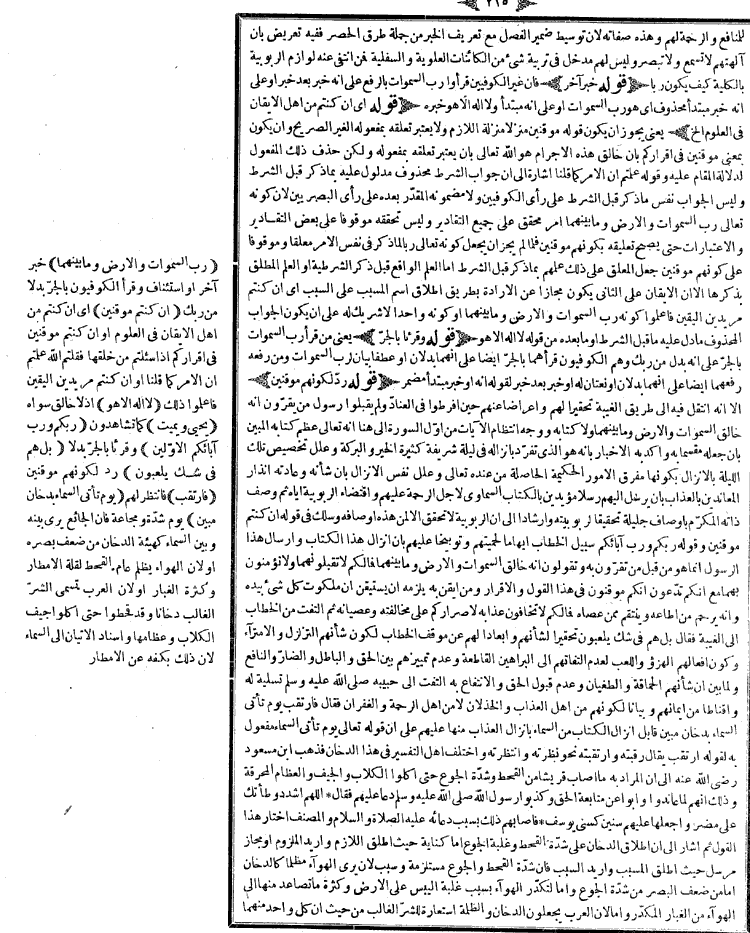 ٢١٥
للمنافع والرحمة لهم وهذه صفاته لان توسيط ضمير الفصل مع تعريف الخبر من جملة طرق الحصر ففيه تعريض بان
آلهتهم لا تسمع ولا تبصر وليس لهم مدخل فى تربية شئ من الكائنات العلوية والسفلية فن انتفى عنه لوازم الربوبية
بالكلية كيف يكون ربا ﴿ قوله خبر آخر ﴾ فان غير الكوفيين قرأوا رب السموات بالرفع على انه خبر بعد خبر او على
انه خبر مبتدأ محذوف اى هو رب السموات او على انه مبتدأ ولا اله الا هو خبره ﴿ قوله اى ان كنتم من اهل الايقان
فى العلوم الخ ﴾ يعنى يجوز ان يكون قوله موقنين منزلا منزلة اللازم ولا يعتبر تعلقه بمفعوله الغير الصريح وان يكون
بمعنى موقنين فى اقراركم بان خالق هذه الاجرام هو الله تعالى بان يعتبر تعلقه بمفعوله ولكن حذف ذلك المفعول
لدلالة المقام عليه وقوله علمتم ان الامر كما قلنا اشارة الى ان جواب الشرط محذوف مدلول عليه بما ذكر قبل الشرط
وليس الجواب نفس ما ذكر قبل الشرط على رأى الكوفيين ولا مضمونه المقدّر بعده على رأى البصريين لان كونه
تعالى رب السموات والارض وما بينهما امر محقق على جميع التقادير وليس تحققه موقوفا على بعض التقادير
والاعتبارات حتى يصح تعليقه بكونهم موقنين فلما لم يجز ان يجعل كونه تعالى ربا لما ذكر فى نفس الامر معلقا وموقوفا
على كونهم موقنين جعل المعلق على ذلك علمهم بما ذكر قبل الشرط اما العلم الواقع قبل ذكر الشرطية او العلم المطلق
بذكرها الا ان الايقان على الثانى يكون مجازا عن الارادة بطريق اطلاق اسم المسبب على السبب اى ان كنتم
مريدين اليقين فاعلموا كونه رب السموات والارض وما بينهما او كونه واحدا لا شريك له على ان يكون الجواب
المحذوف ما دل عليه ما قبل الشرط او ما بعده من قوله لا اله الا هو ﴿ قوله وقرئا بالجرّ ﴾ يعنى من قرأ رب السموات
بالجرّ على انه بدل من ربك وهم الكوفيون قرأهما بالجرّ ايضا على انهما بدلان او عطفا بيان لرب السموات ومن رفعه
رفعهما ايضا على انهما بدلان او نعتان له او خبر بعد خبر لقوله انه او خبر مبتدأ مضمر ﴿ قوله ردّ لكونهم موقنين ﴾
الا انه انتقل فيه الى طريق الغيبة تحقيرا لهم واعراضا عنهم حين افرطوا فى العناد ولم يقبلوا رسول من يقرّون انه
خالق السموات والارض وما بينهما ولا كتابه ووجه انتظام الآيات من اوّل السورة الى هنا انه تعالى عظم كتابه المبين
بان جعله مقسما به واكد به الاخبار بانه هو الذى تفرّد بانزاله فى ليلة شريفة كثيرة الخير والبركة وعلل تخصيص تلك
الليلة بالانزال بكونها مفرق الامور الحكيمة الحاصلة من عنده تعالى وعلل نفس الانزال بان شأنه وعادته انذار
المعاندين بالعذاب بان يرسل اليهم رسلا مؤيدين بالكتاب السماوى لاجل الرحمة عليهم واقتضاء الربوبية اياه ثم وصف
ذاته المكرّم باوصاف جليلة تحقيقا لربوبيته وارشادا الى ان الربوبية لا تحقق الا لمن هذه اوصافه وسلك فى قوله ان كنتم
موقنين وقوله ربكم ورب آبائكم سبيل الخطاب ايهاما لحميتهم وتوبيخا عليهم بان انزال هذا الكتاب وارسال هذا
الرسول انما هو من قبل من تقرّون به وتقولون انه خالق السموات والارض وما بينهما فما لكم لا تقبلونهما ولا تؤمنون
بهما مع انكم تدّعون انكم موقنون فى هذا القول والاقرار ومن ايقن به يلزمه ان يستيقن ان ملكوت كل شئ بيده
وانه يرحم من اطاعه وينتقم ممن عصاه فما لكم لا تخافون عذابه لاصراركم على مخالفته وعصيانه ثم التفت من الخطاب
الى الغيبة فقال بل هم فى شك يلعبون تحقيرا لشأنهم وابعادا لهم عن موقف الخطاب لكون شأنهم التزلزل والامترآء
وكون افعالهم الهزؤ واللعب لعدم التفاتهم الى البراهين القاطعة وعدم تمييزهم بين الحق والباطل والضارّ والنافع
ولما بين ان شأنهم الحماقة والطغيان وعدم قبول الحق والانتفاع به التفت الى حبيبه صلى الله عليه وسلم تسلية له
واقناطا من ايمانهم وبيانا لكونهم من اهل العذاب والخذلان لا من اهل الرحمة والغفران فقال فارتقب يوم تأتى
السماء بدخان مبين قابل انزال الكتاب من السماء بانزال العذاب منها عليهم على ان قوله تعالى يوم تأتى السماء مفعول
به لقوله ارتقب يقال رقبته وارتقبته نحو نظرته وانتظرته واختلف اهل التفسير فى هذا الدخان فذهب ابن مسعود
رضى الله عنه الى ان المراد به ما اصاب قريشا من القحط وشدّة الجوع حتى اكلوا الكلاب والجيف والعظام المحرقة
وذلك انهم لما عاندوا وابوا عن متابعة الحق وكذبوا رسول الله صلى الله عليه وسلم دعا عليهم فقال * اللهم اشدد وطأتك
على مضر واجعلها عليهم سنين كسنى يوسف * فاصابهم ذلك بسبب دعائه عليه الصلاة والسلام والمصنف اختار هذا
القول ثم اشار الى ان اطلاق الدخان على شدّة القحط وغلبة الجوع اما كناية حيث اطلق اللازم واريد الملزوم او مجاز
مرسل حيث اطلق المسبب واريد السبب فان شدّة القحط والجوع مستلزمة وسبب لان يرى الهوآء مظلما كالدخان
اما من ضعف البصر من شدّة الجوع واما لتكدّر الهوآء بسبب غلبة اليبس على الارض وكثرة ما تصاعد منها الى
الهوآء من الغبار المكدّر واما لان العرب يجعلون الدخان والظلمة استعارة للشرّ الغالب من حيث ان كل واحد منهما
( رب السموات والارض وما بينهما ) خبر
آخر او استئناف وقرأ الكوفيون بالجرّ بدلا
من ربك ( ان كنتم موقنين ) اى ان كنتم من
اهل الايقان فى العلوم او ان كنتم موقنين
فى اقراركم اذا سئلتم من خلقها فقلتم الله علمتم
ان الامر كما قلنا او ان كنتم مريدين اليقين
فاعلموا ذلك ( لا اله الا هو ) اذ لا خالق سواه
( يحيى ويميت ) كما تشاهدون ( ربكم ورب
آبائكم الاوّلين ) وقرئا بالجرّ بدلا ( بل هم
فى شك يلعبون ) رد لكونهم موقنين
( فارتقب ) فانتظر لهم ( يوم تأتى السماء بدخان
مبين ) يوم شدّة ومجاعة فان الجائع يرى بينه
وبين السماء كهيئة الدخان من ضعف بصره
او لان الهواء يظلم عام القحط لقلة الامطار
وكثرة الغبار او لان العرب تسمى الشرّ
الغالب دخانا وقد قحطوا حتى اكلوا جيف
الكلاب وعظامها واسناد الاتيان الى السماء
لان ذلك بكفه عن الامطار